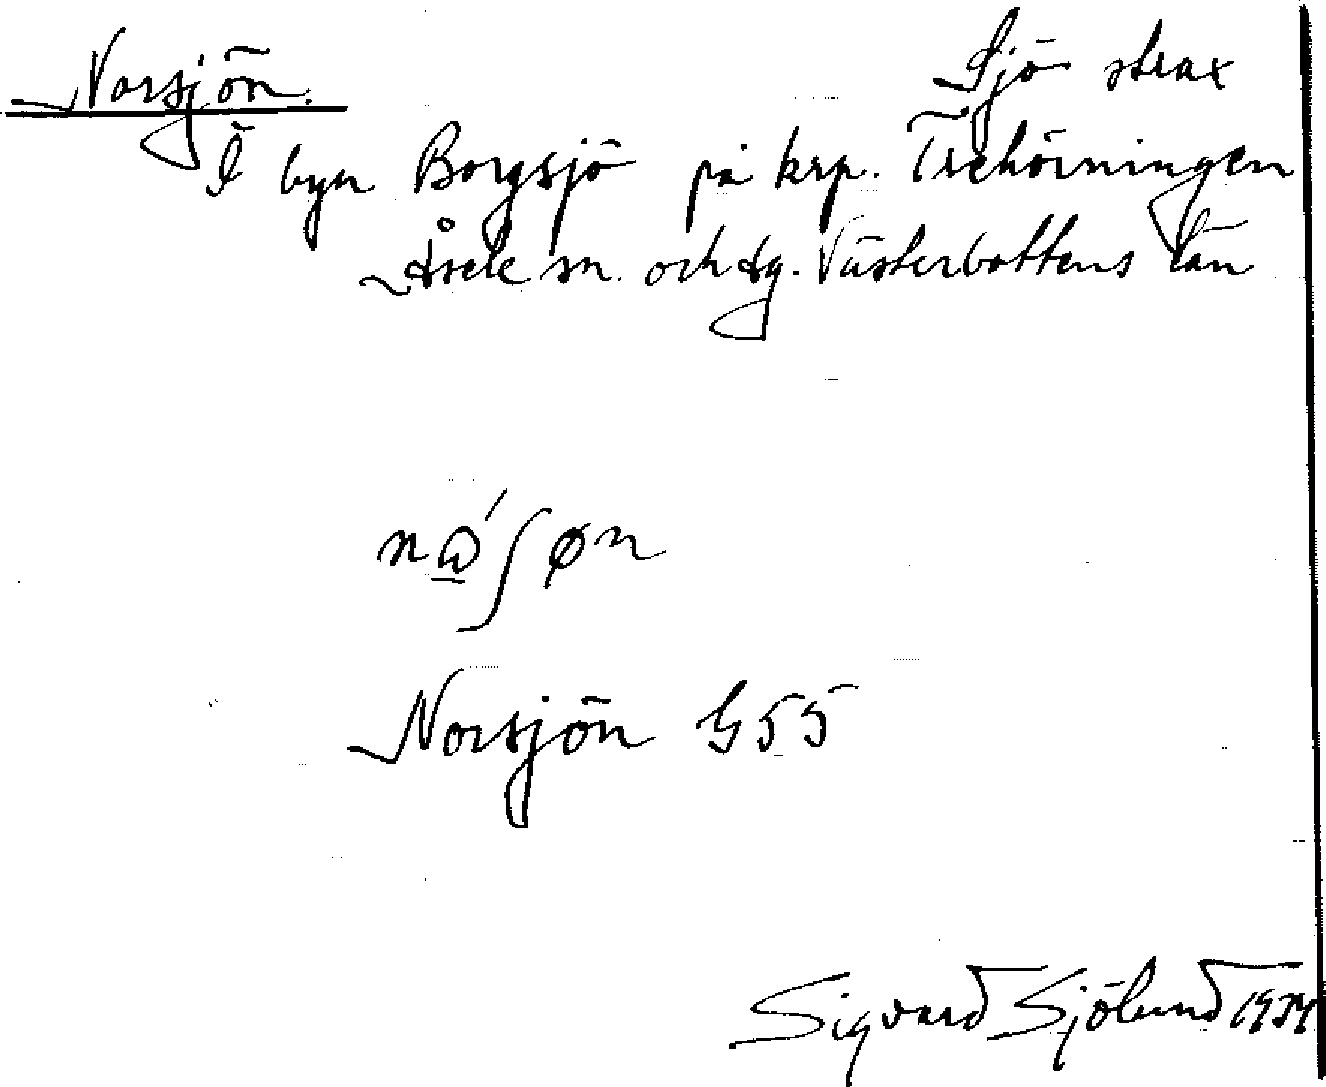 Norsjön. Sjö strax
I byn Borgsjö på krp. Trehörningen
Åsele sn. och dg. Västerbottens län
nǻ̱ʃøn
Norsjön G55
Sigvard Sjölund